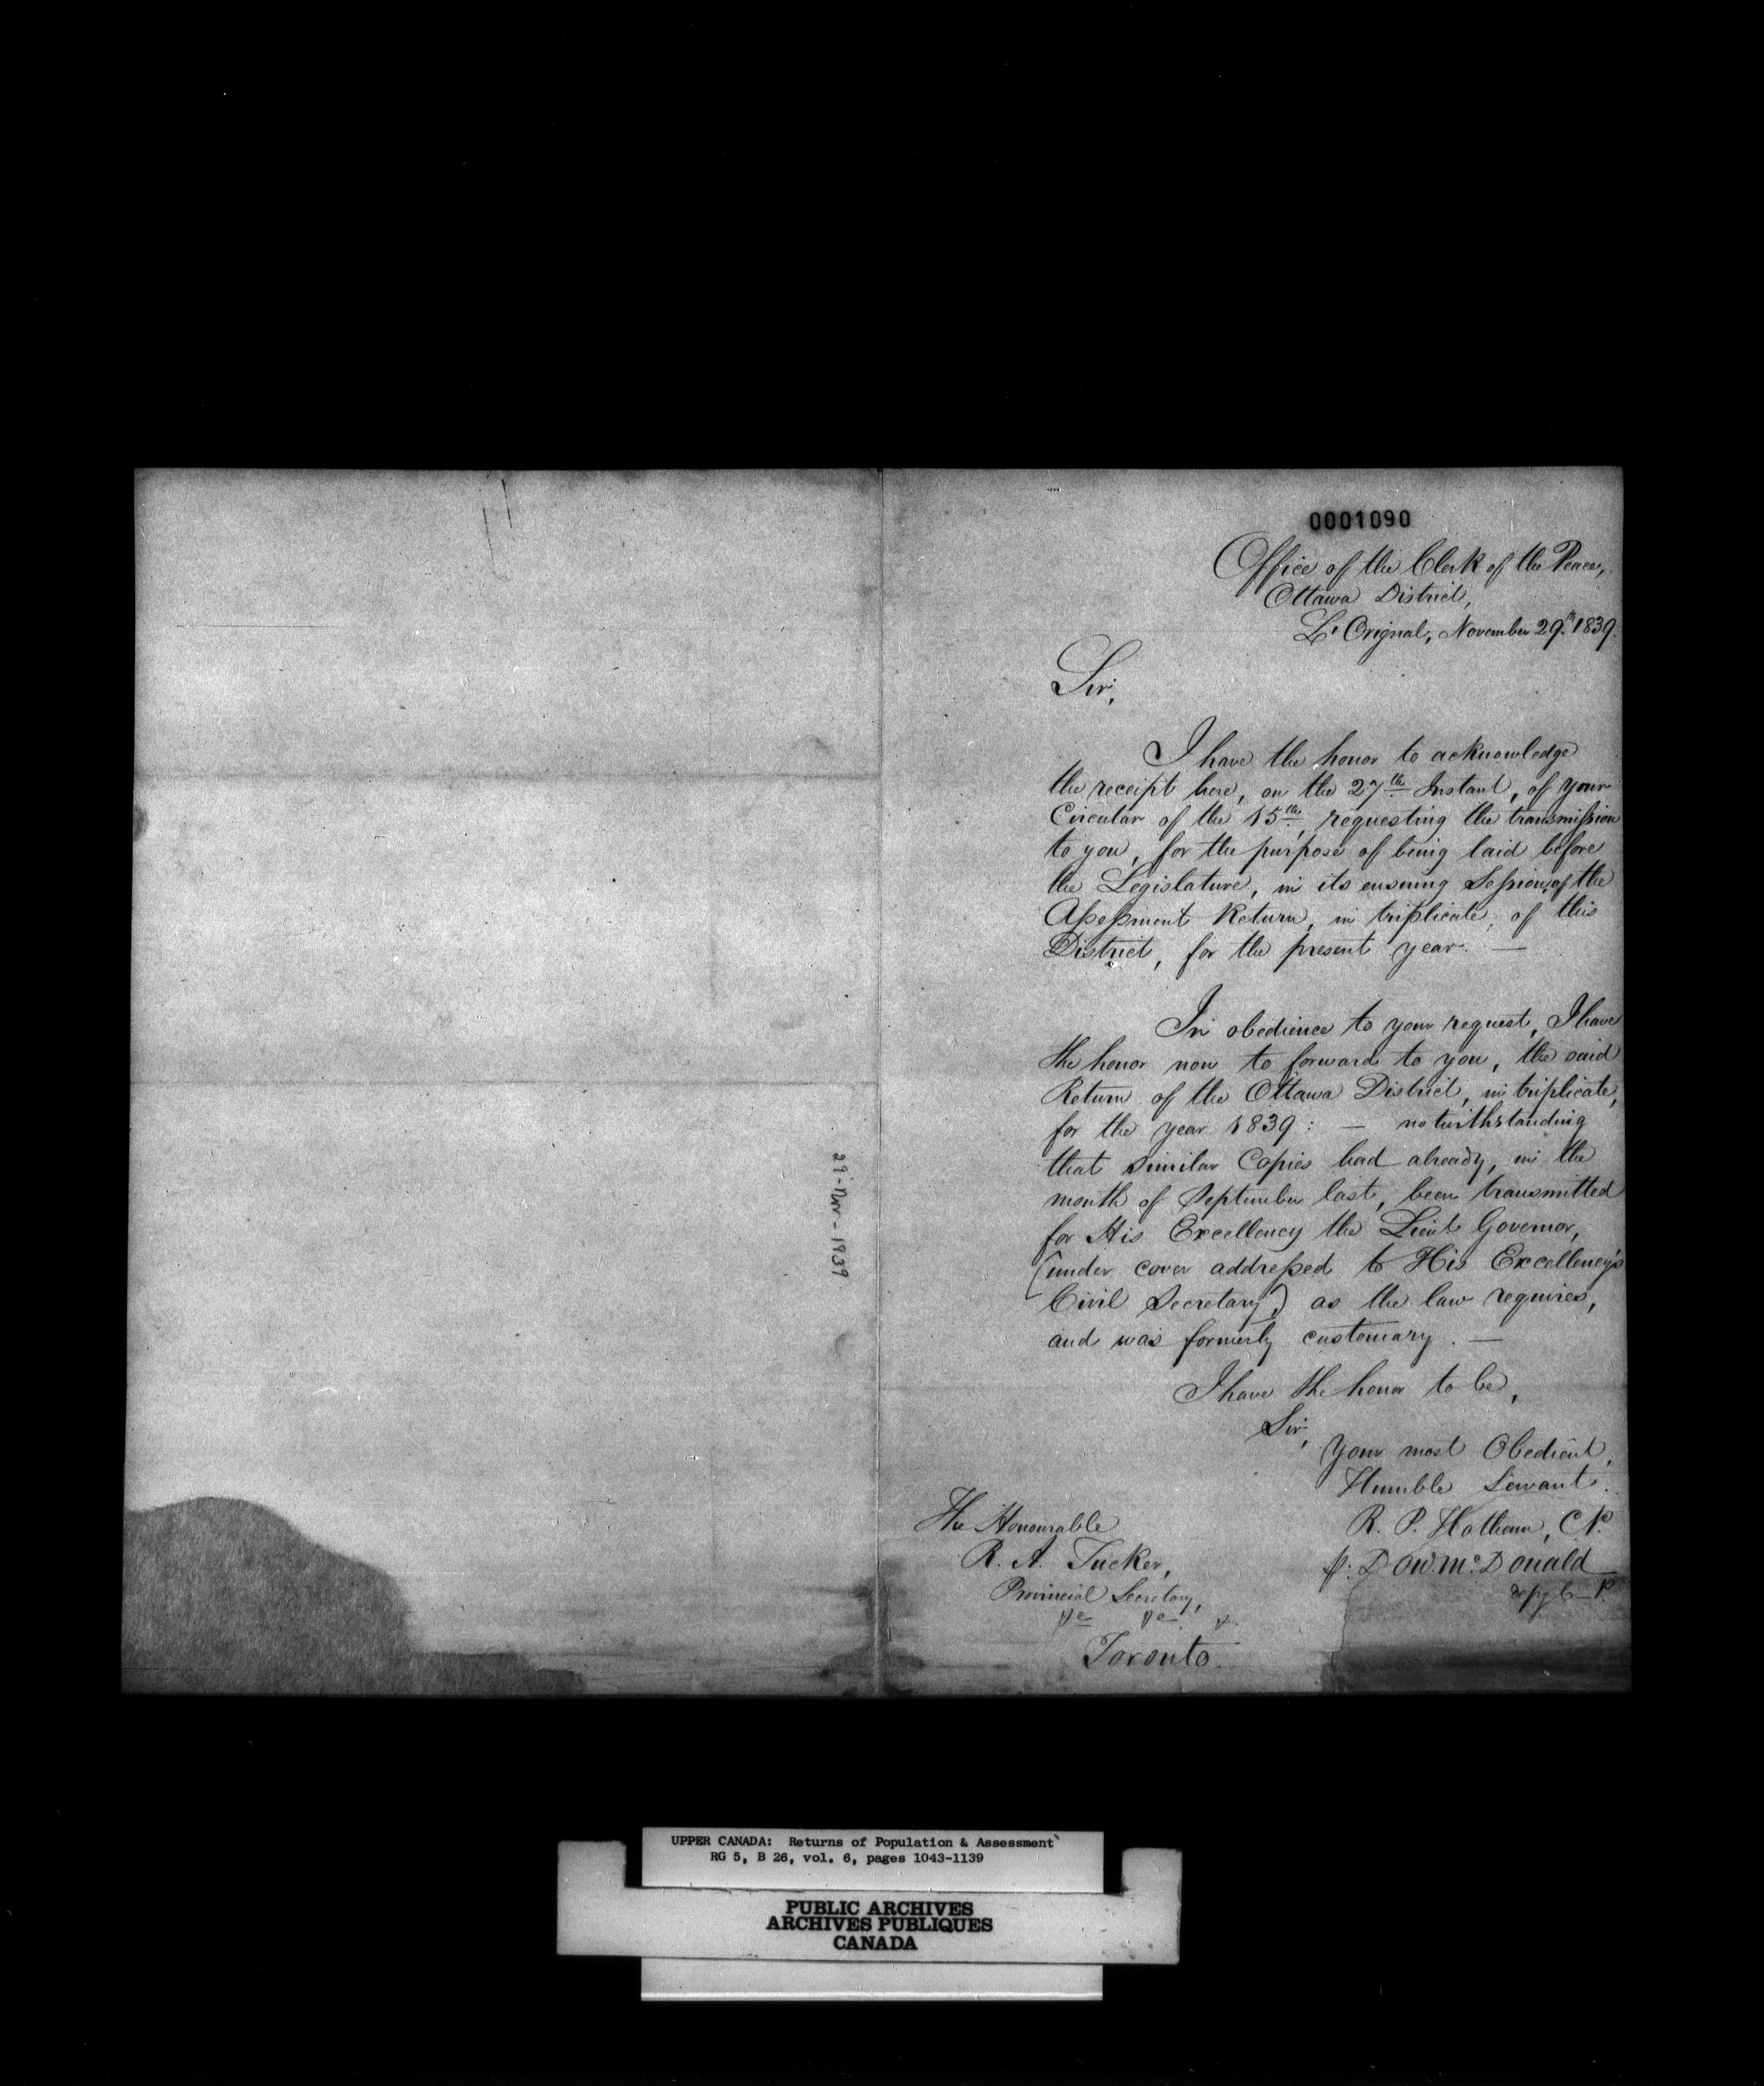 0001090
Office of the Clerk of the Peace,
Ottawa District,
L'Orignal, November 29th 1839.
Sir,
I have the honor to acknowledge
the receipt here, on the 27th Instant, of your
Circular of the 15th, requesting the transmission
to you, for the purpose of being laid before
the Legislature, in its ensuing Session, of the
Assessment Return, in triplicate, of this
District, for the present year. —
In obedience to your request, I have
the honor now to forward to you, the said
Return of the Ottawa District, in triplicate,
for the year 1839: — notwithstanding
that similar Copies had already, in the
month of September last, been transmitted
for His Excellency the Lieut Governor,
(under cover addressed to His Excellency's
Civil Secretary,) as the law requires,
and was formerly customary. —
I have the honor to be,
Sir,
Your most Obedient,
Humble Servant.
R. P. Hotham, C.P.
p. Dow. McDonald
The Honourable
R. A. Tucker,
Provincial Secretary,
Toronto.
29-Nov-1839
UPPER CANADA: Returns of Population & Assessment
RG 5, B 26, vol. 6, pages 1043-1139
PUBLIC ARCHIVES
ARCHIVES PUBLIQUES
CANADA